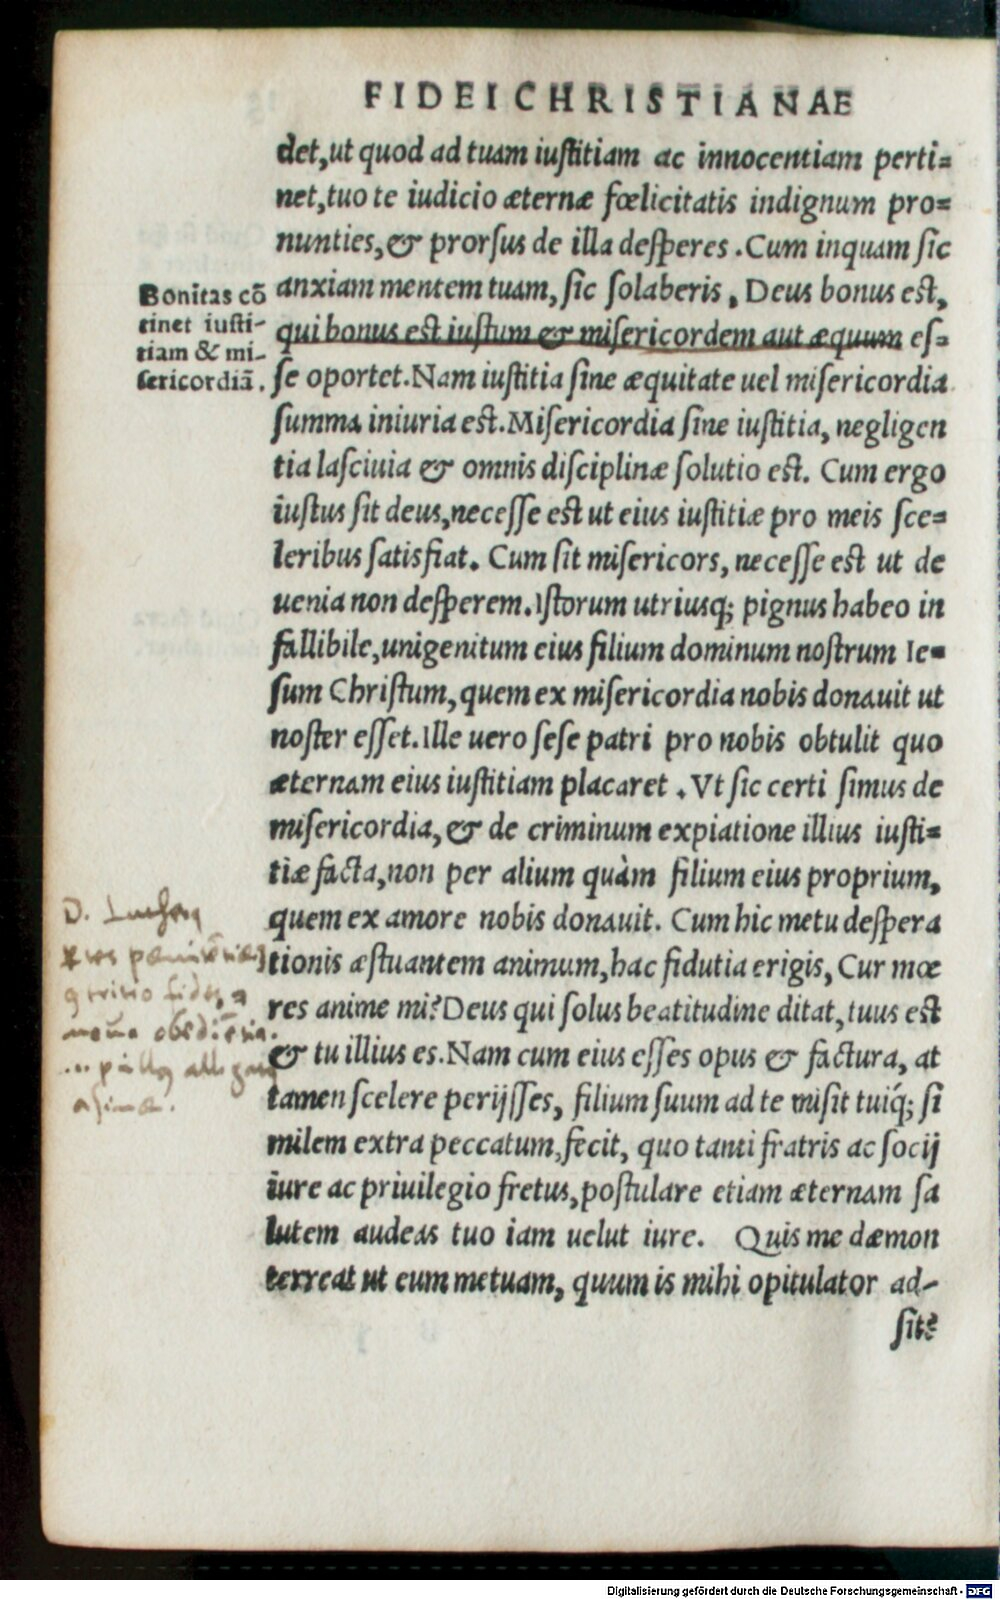 FIDEI CHRISTIANAE
det, ut quod ad tuam iuſtitiam ac innocentiam perti=
net, tuo te iudicio æternæ fœlicitatis indignum pro=
nunties, & prorſus de illa deſperes. Cum inquam ſic
anxiam mentem tuam, ſic ſolaberis. Deus bonus est,
qui bonus est iuſtum & miſericordem aut æquum eſ=
ſe oportet. Nam iuſtitia ſine æquitate uel miſericordia
ſumma iniuria est. Miſericordia ſine iuſtitia, negligen
tia laſciuia & omnis diſciplinæ ſolutio est. Cum ergo
iuſtus ſit deus, neceſſe est ut eius iuſtitiæ pro meis ſce=
leribus ſatisfiat. Cum ſit miſericors, neceſſe est ut de
uenia non deſperem. Iſtorum utriusq; pignus habeo in
fallibile, unigenitum eius filium dominum noſtrum Ie=
ſum Chriſtum, quem ex miſericordia nobis donauit ut
noſter eſſet. Ille uero ſeſe patri pro nobis obtulit quo
æternam eius iuſtitiam placaret. Vt ſic certi ſimus de
miſericordia, & de criminum expiatione illius iuſti=
tiæ facta, non per alium quàm filium eius proprium,
quem ex amore nobis donauit. Cum hic metu deſpera
tionis æſtuantem animum, hac fidutia erigis, Cur mœ
res anime mi? Deus qui ſolus beatitudine ditat, tuus est
& tu illius es. Nam cum eius eſſes opus & factura, at
tamen ſcelere perijſſes, filium ſuum ad te miſit tuiq́; ſi
milem extra peccatum, fecit, quo tanti fratris ac ſocij
iure ac priuilegio fretus, poſtulare etiam æternam ſa
lutem audeas tuo iam uelut iure. Quis me dæmon
terreat ut eum metuam, quum is mihi opitulator ad-
ſit?
Bonitas cõ
tinet iuſti-
tiam & mi-
ſericordiã.
D. Luther
Digitalisierung gefördert durch die Deutsche Forschungsgemeinschaft - DFG